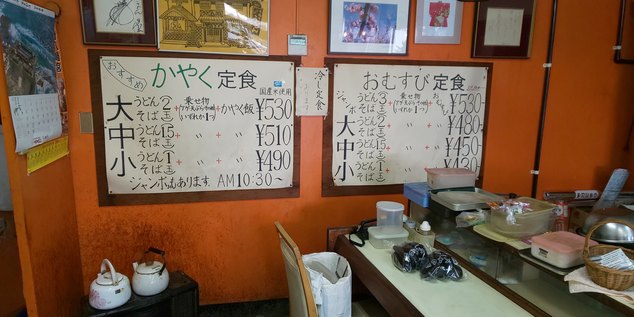 おすすめ
かやく定食
国産米使用
大 うどん そば 2玉 + 乗せ物 (いずれか1つ) + かやく飯 ¥530
中 うどん そば 1.5玉 + 〃 + 〃 ¥510
小 うどん そば 1玉 + 〃 + 〃 ¥490
ジャンボもあります AM10:30~
冷し定食
おむすび定食
ジャンボ うどん そば 3玉 + 乗せ物 (いずれか1つ) + おむすび ¥530
大 うどん そば 2玉 + 〃 + 〃 ¥480
中 うどん そば 1.5玉 + 〃 + 〃 ¥450
小 うどん そば 1玉 + 〃 + 〃 ¥430